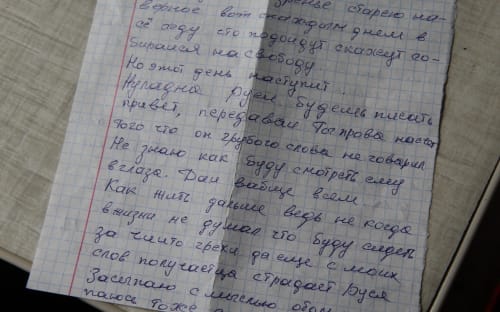 зренье старею на-
верное вот каждым днем в
сё жду что подойдут скажут со-
бирайся на свободу
Но этот день наступит.
Ну ладно Русей будешь писать
привет, передавай
того что он грубого слова не говорил
Не знаю как буду смотреть ему
в глаза. Даи вабще всем
Как жить дальше ведь не когда
в жизни не думал что буду сидеть
за чиито грехи да еще с моих
слов получаетца страдает Руся
Засыпаю с мыслью обо
тоже